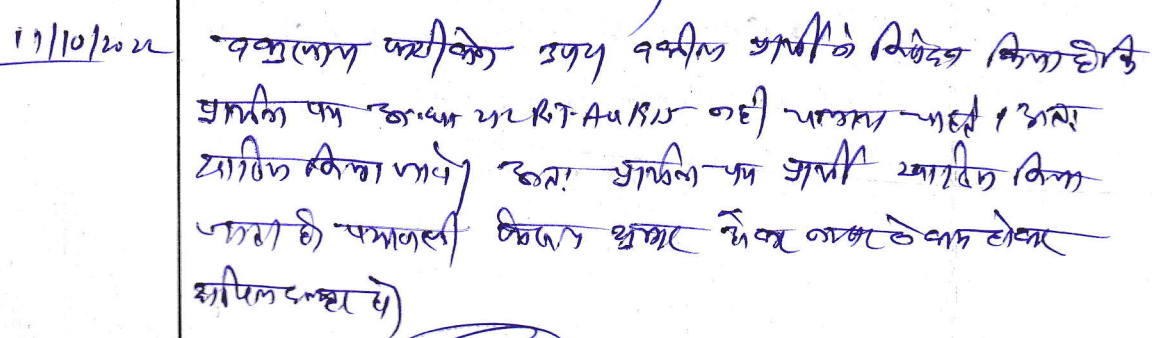 11/10/2022
वकुलाय फरीकेन उभय वकील प्रार्थी ने निवेदन किया है कि
प्रार्थना पत्र अ.धारा R.T.Act नहीं चलाना चाहते। अतः
खारिज किया जावे। अतः प्रार्थना पत्र प्रार्थी खारिज किया
जाता है पत्रावली फैसल शुमार होकर नम्बर से कम होकर
दाखिल दफ्तर हो